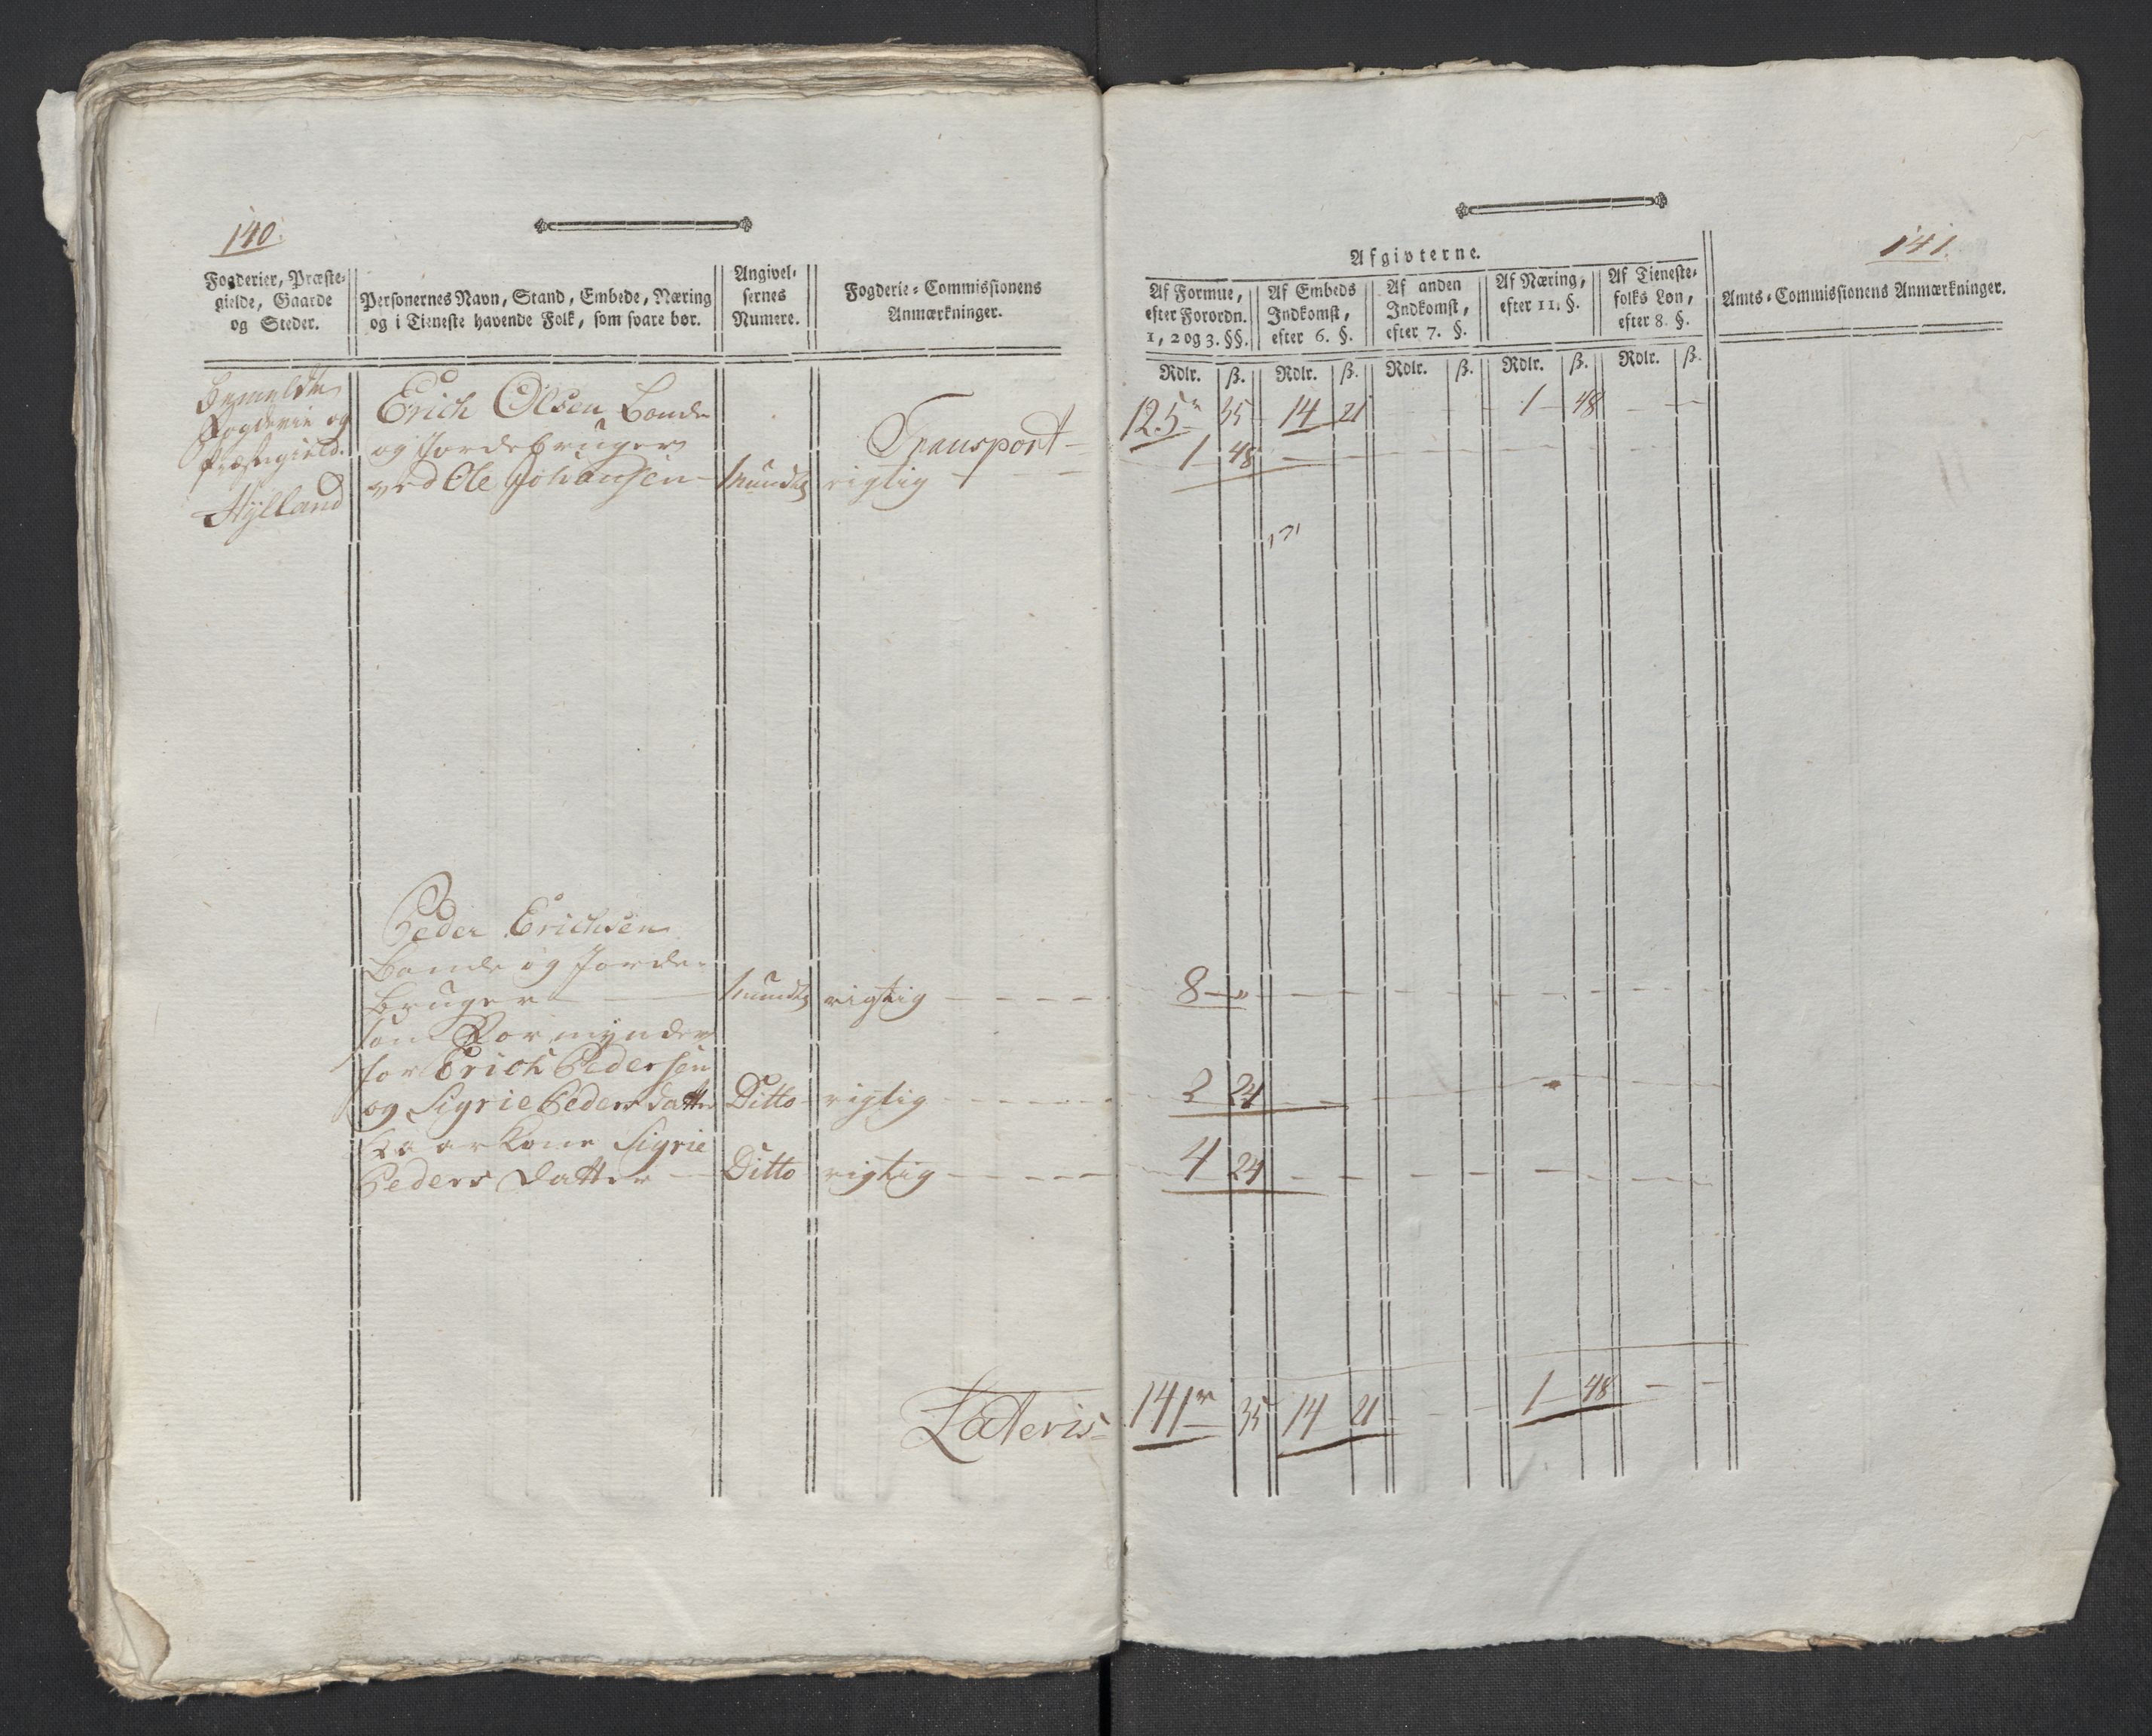 140.
Fogderier, Præste-
gielde, Gaarde
og Steder.
Personernes Navn, Stand, Embede, Næring
og i Tieneste havende Folk, som svare bør.
Angivel-
sernes
Numere.
Fogderie-Commissionens
Anmærkninger.
Bemeldte
Fogderie og
Præstegield.
Hylland
Erich Olsen Bonde
og Jordebruger
ved Ole Johansen - mundtlig rigtig
Transport
Peder Erichsen
Bonde og Jorde-
bruger mundtlig rigtig
som Formynder
for Erich Pedersen
og Sigrie Pedersdatter Ditto rigtig
Kaarkone Sigrie
Peders Datter Ditto rigtig
Lateris
141.
Afgivterne.
Af Formue,
efter Forordn.
1, 2 og 3. §§.
Af Embeds
Indkomst,
efter 6. §.
Af anden
Indkomst,
efter 7. §.
Af Næring,
efter 11. §.
Af Tieneste-
folks Løn,
efter 8. §.
Amts-Commissionens Anmærkninger.
Rdlr. ß. Rdlr. ß. Rdlr. ß. Rdlr. ß. Rdlr. ß.
125 35 14 21 1 48
1 48
8 "
2 24
4 24
141 35 14 21 1 48